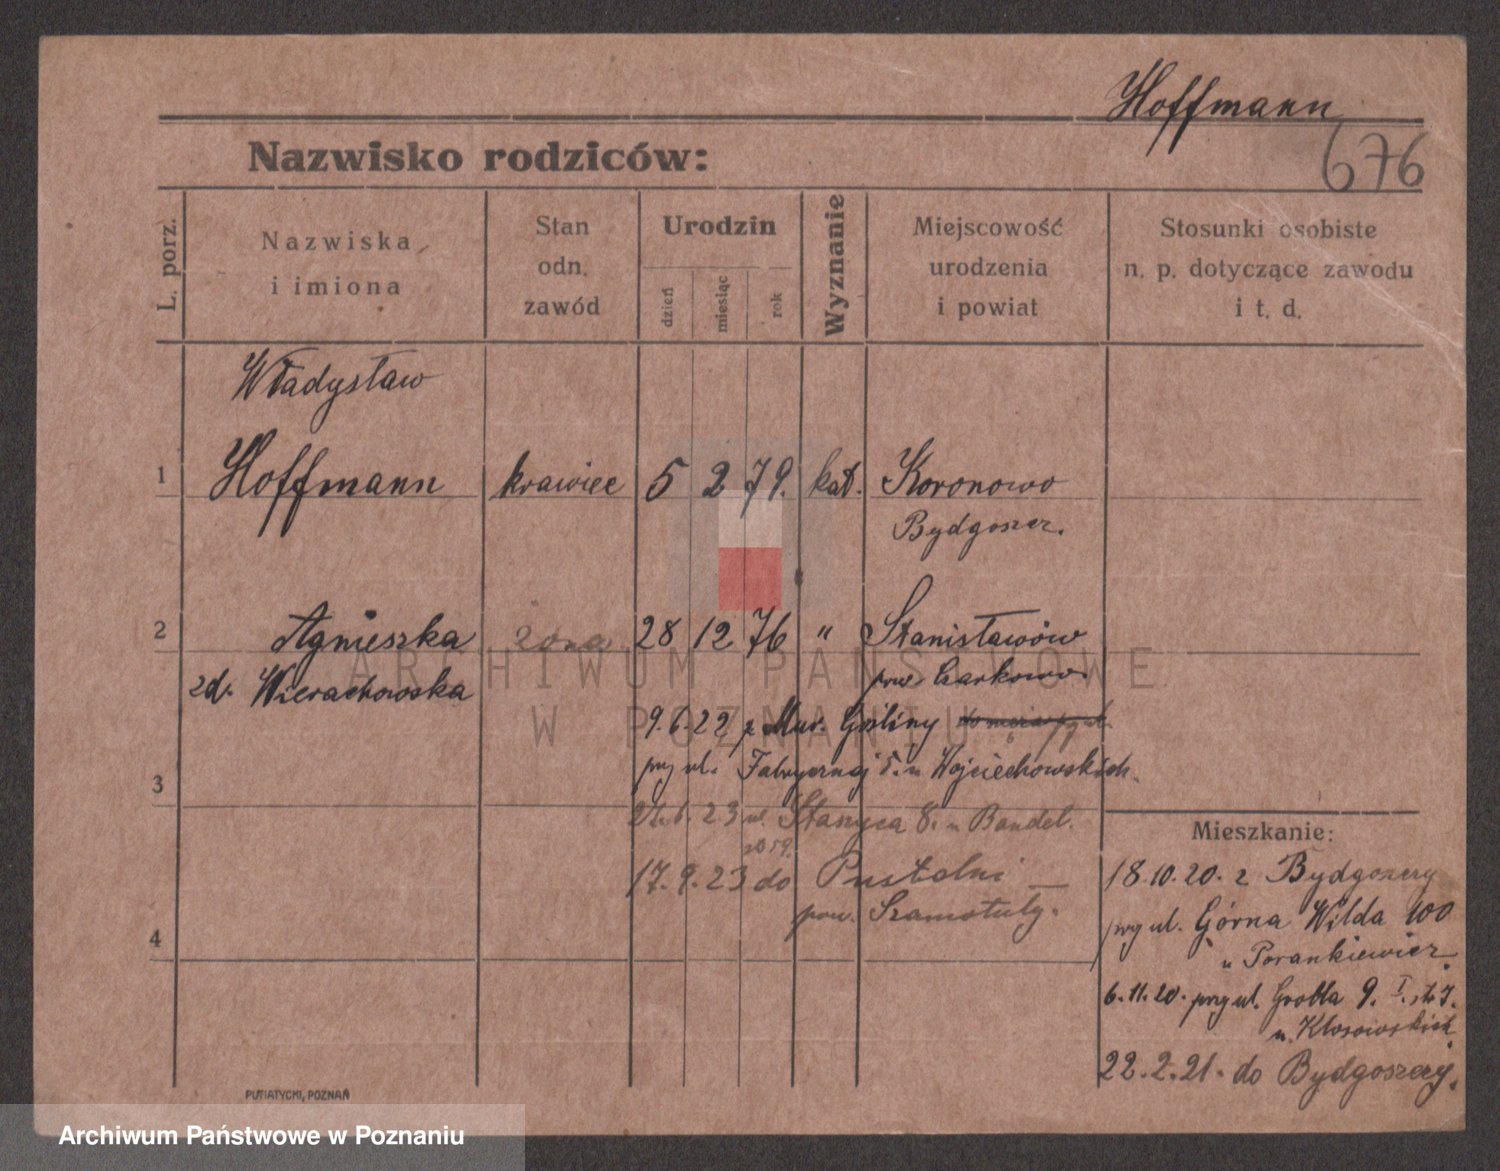 Hoffmann
676
Nazwisko rodziców:
L. porz.
Nazwiska
i imiona
Stan
odn.
zawód
Urodzin
dzień
miesiąc
rok
Wyznanie
Miejscowość
urodzenia
i powiat
Stosunki osobiste
n. p. dotyczące zawodu
i t. d.
Władysław
1 Hoffmann krawiec 5 2 79. kat. Koronowo
Bydgoszcz.
2 Agnieszka żona 28 12 76 " Stanisławów
zd. Wierachowska pow. Czarkowo.
9.6.22 z Mur. Gośliny
przy ul. Fabrycznej 5. u Wojciechowskich.
3
6.23 ul. Stanyca 8. u Bandel.
17.9.23 do Pustelni
pow. Szamotuły.
4
Mieszkanie:
18.10.20. z Bydgoszczy
przy ul. Górna Wilda 100
u Porankiewicz.
6.11.20. przy ul. Grobla 9. I.
u Kłosowskich.
22.2.21. do Bydgoszczy.
PUTIATYCKI, POZNAŃ
ARCHIWUM PAŃSTWOWE
W POZNANIU
Archiwum Państwowe w Poznaniu